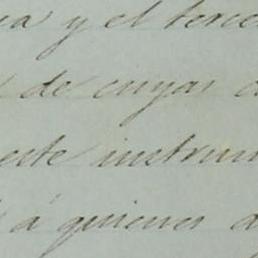 y el terce
de cuyas
este instrum
á quienes d